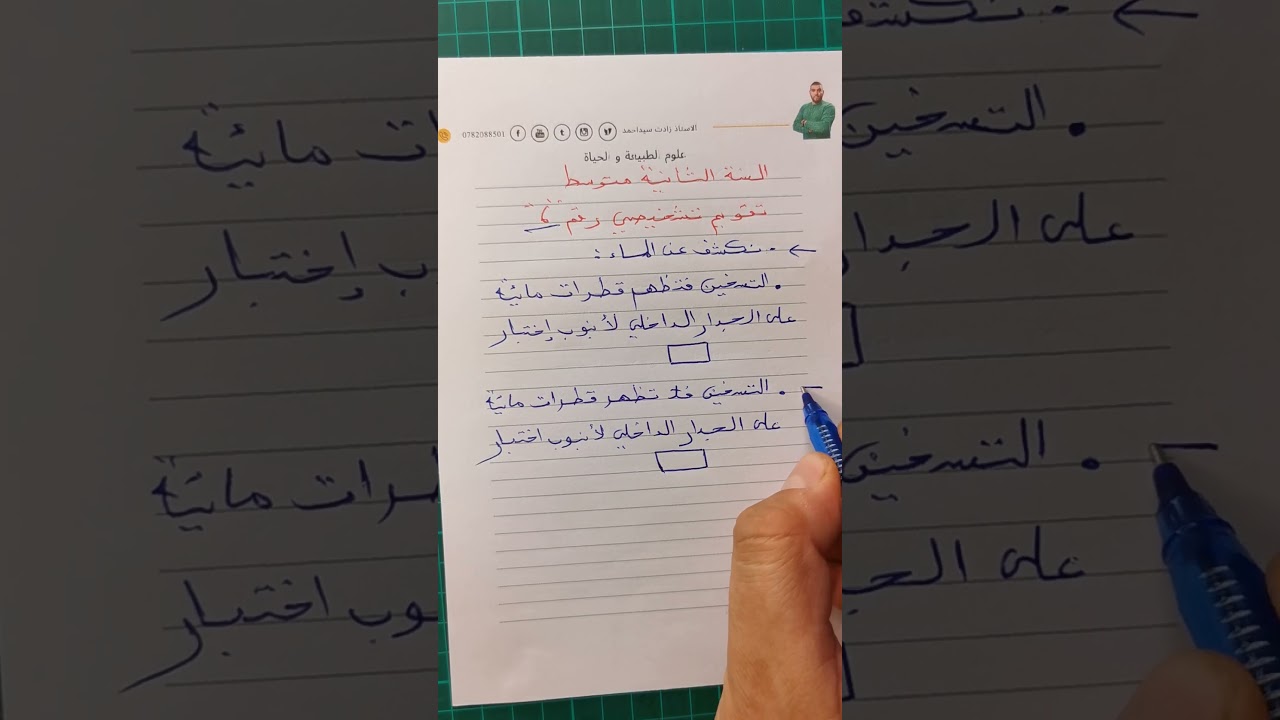 الاستاذ زادت سيداحمد
0782088501
علوم الطبيعة و الحياة
السنة الثانية متوسط
تقويم تشخيصي رقم "6"
← - نكشف عن الماء :
. التسخين فتظهر قطرات مائية
على الجدار الداخلي لأنبوب إختبار
. التسخين فلا تظهر قطرات مائية
على الجدار الداخلي لأنبوب اختبار